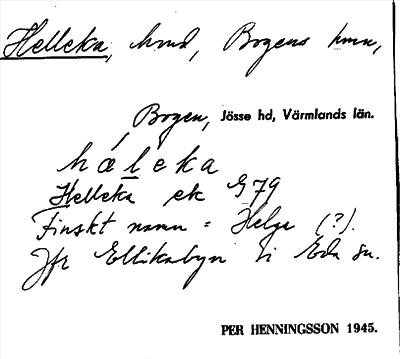 Helleka, hmd, Bogens kmn,
Bogen, Jösse hd, Värmlands län.
háleka
Helleka ek G79
Finskt namn = Helge (?).
Jfr Ellikabyn i Eda sn.
PER HENNINGSSON 1945.